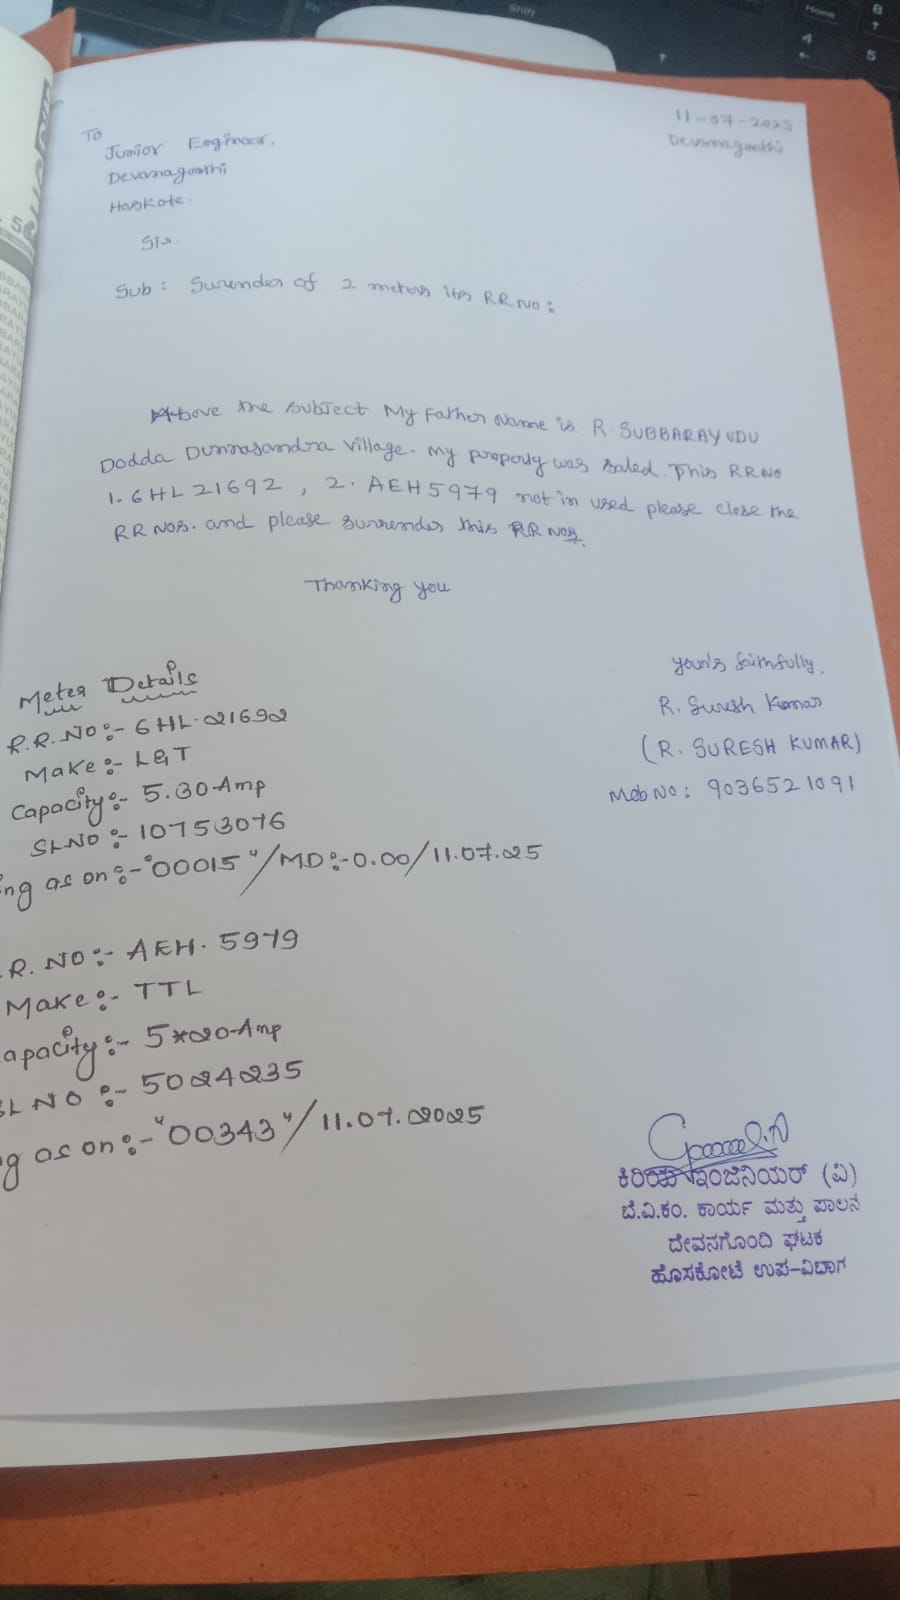 11-07-2025
Devanagonthi
To
Junior Engineer,
Devanagonthi
Hoskote.
Sir.
Sub: Surender of 2 meters its RR No:
Above the subject My Father Name is R. SUBBARAYUDU
Dodda Dunnasandra village. My property was saled. This RR No
1. 6HL 21692, 2. AEH5979 not in used please close the
RR Nos. and please surrender this RR Nos.
Thanking you
Meter Details
R.R.NO:- 6HL-21692
Make:- L&T
Capacity:- 5.30-Amp
SLNO:- 10753076
ng as on:- "00015"/MD:-0.00/11.07.25
.R. NO:- AEH. 5979
Make:- TTL
apacity:- 5*20-Amp
SL NO:- 5024235
g as on:- "00343"/11.07.2025
your's faithfully,
R. Suresh Kumar
(R. SURESH KUMAR)
Mob No: 9036521091
ಕಿರಿಯ ಇಂಜಿನಿಯರ್ (ವಿ)
ಬೆ.ವಿ.ಕಂ. ಕಾರ್ಯ ಮತ್ತು ಪಾಲನ
ದೇವನಗೊಂದಿ ಘಟಕ
ಹೊಸಕೋಟೆ ಉಪ-ವಿಭಾಗ